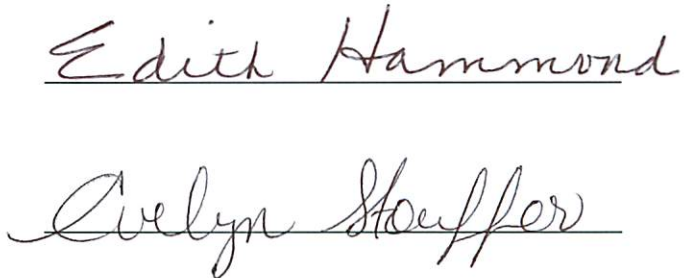 Edith Hammond
Evelyn Stouffer